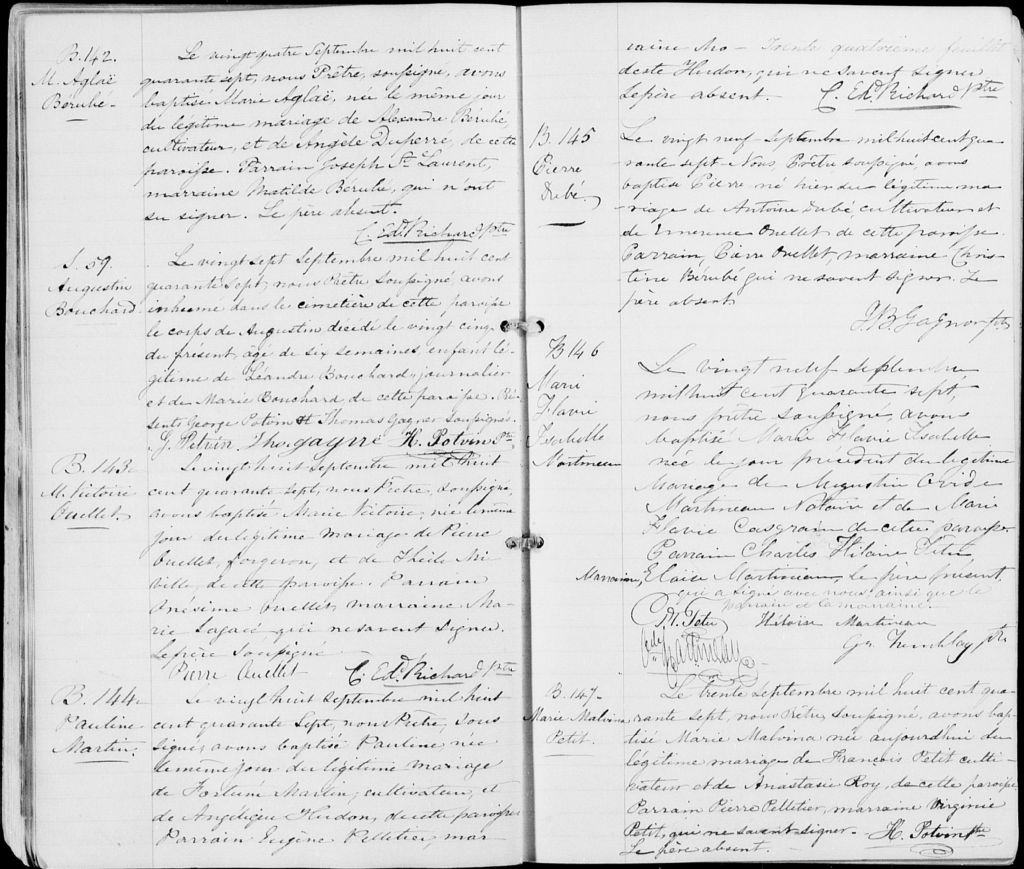 B. 142.
M. Aglaë
Bérubé
Le vingt quatre Septembre mil huit cent
quarante sept, nous Prêtre, soussigné, avons
baptisé Marie Aglaë, née le même jour
du légitime mariage de Alexandre Bérubé
cultivateur, et de Angèle Duperré, de cette
paroisse. Parrain Joseph St Laurent,
marraine Matilde Bérubé, qui n'ont
su signer. Le père absent.
C. Edd Richard Ptre
S. 59.
Augustin
Bouchard
Le vingt sept Septembre mil huit cent
quarante sept, nous Prêtre soussigné, avons
inhumé dans le cimetière de cette paroisse
le corps de Augustin décédé le vingt cinq
du présent, agé de six semaines, enfant lé-
gitime de Léandre Bouchard, journalier
et de Marie Bouchard de cette paroisse. Pré-
sents George Potvin et Thomas Gagner soussignés.
G. Potvin Tho. gagné H. Potvin Ptre
B. 143.
M. Victoire
Ouellet.
Le vingt huit Septembre mil huit
cent quarante sept, nous Prêtre, soussigné,
avons baptisé Marie Victoire, née le même
jour du légitime mariage de Pierre
Ouellet, forgeron, et de Thècle Mi-
ville, de cette paroisse. Parrain
Onésime Ouellet, marraine Ma-
rie Lagacé qui ne savent signer.
Le père soussigné
Pierre Ouellet C. Edd Richard Ptre
B. 144.
Pauline
Martin.
Le vingt huit Septembre mil huit
cent quarante sept, nous Prêtre, sous
signé, avons baptisé Pauline née
le même jour du légitime mariage
de Fortuné Martin, cultivateur, et
de Angélique Hudon, de cette paroisse
Parrain Eugène Pelletier, mar-
raine Mo- Trente quatrième feuillet
deste Hudon, qui ne savent signer
Le père absent. C. Edd Richard Ptre
B. 145
Pierre
Dubé.
Le vingt neuf Septembre mil huit cent qua-
rante sept Nous, Prêtre soussigné, avons
baptisé Pierre né hier du légitime ma-
riage de Antoine Dubé cultivateur et
de Emérence Ouellet de cette paroisse.
Parrain, Pierre Ouellet, marraine Chris-
tine Bérubé qui ne savent signer. Le
père absent
J. B. Gagnon ptre
B 146
Marie
Flavie
Isabelle
Martineau
Le vingt neuf Septembre
mil huit cent quarante sept,
nous prêtre soussigné, avons
baptisé Marie Flavie Isabelle
née le jour précédent du légitime
Mariage de Augustin Ovide
Martineau Notaire et de Marie
Flavie Casgrain de cette paroisse.
Parrain Charles Hilaire Tétu
Marraine, Eloïse Martineau, le père présent,
qui a signé avec nous ainsi que le
parrain et la marraine.
C. H. Tetu Héloise Martineau
Ode Martineau
Gn Tremblay ptre
B. 147.
Marie Malvina
Petit.
Le trente Septembre mil huit cent qua-
rante sept, nous Prêtre, soussigné, avons bap-
tisé Marie Malvina née aujourdhui du
légitime mariage de François Petit culti-
vateur et de Anastasie Roy, de cette paroisse,
Parrain Pierre Pelletier, marraine Virginie
Petit, qui ne savent signer. H. Potvin Ptre
Le père absent.